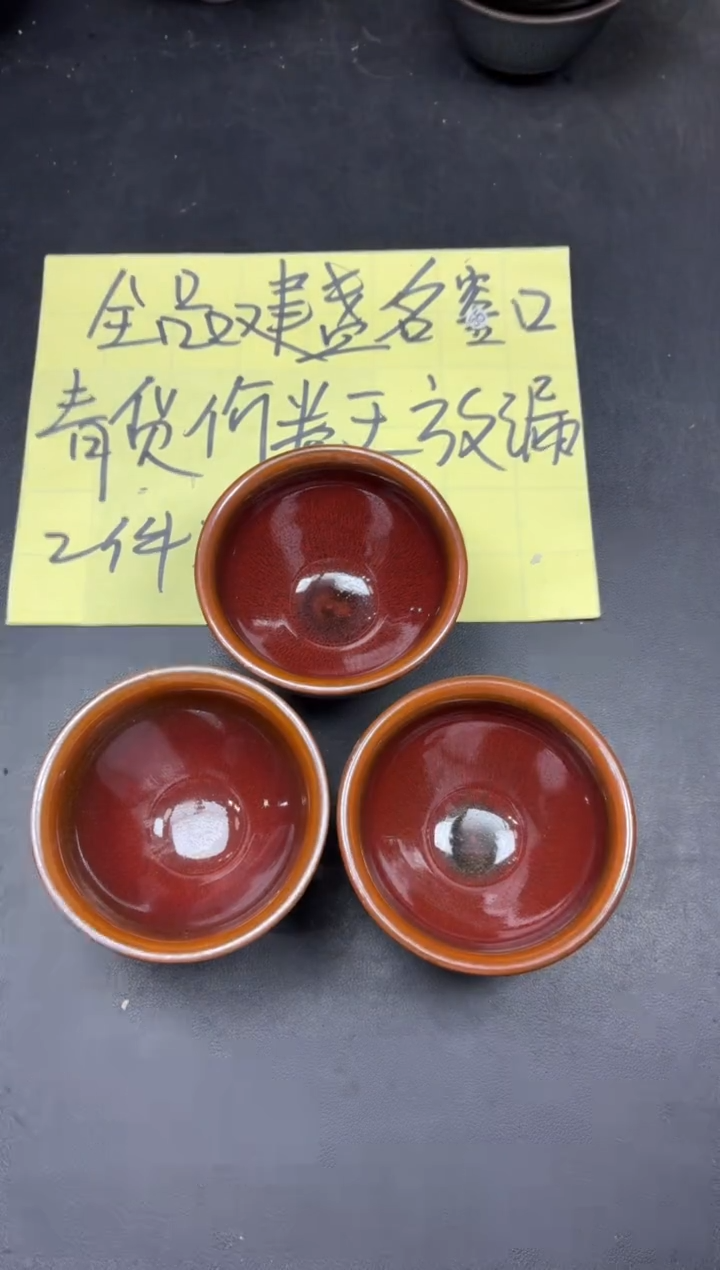 全品建盏名窑口
青货价天放漏
2件